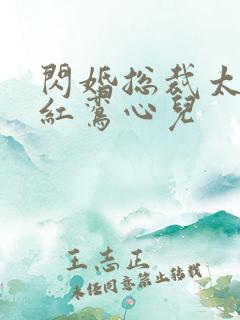 閃婚総裁太
紅鸞心兒
王志正
未经同意禁止转载